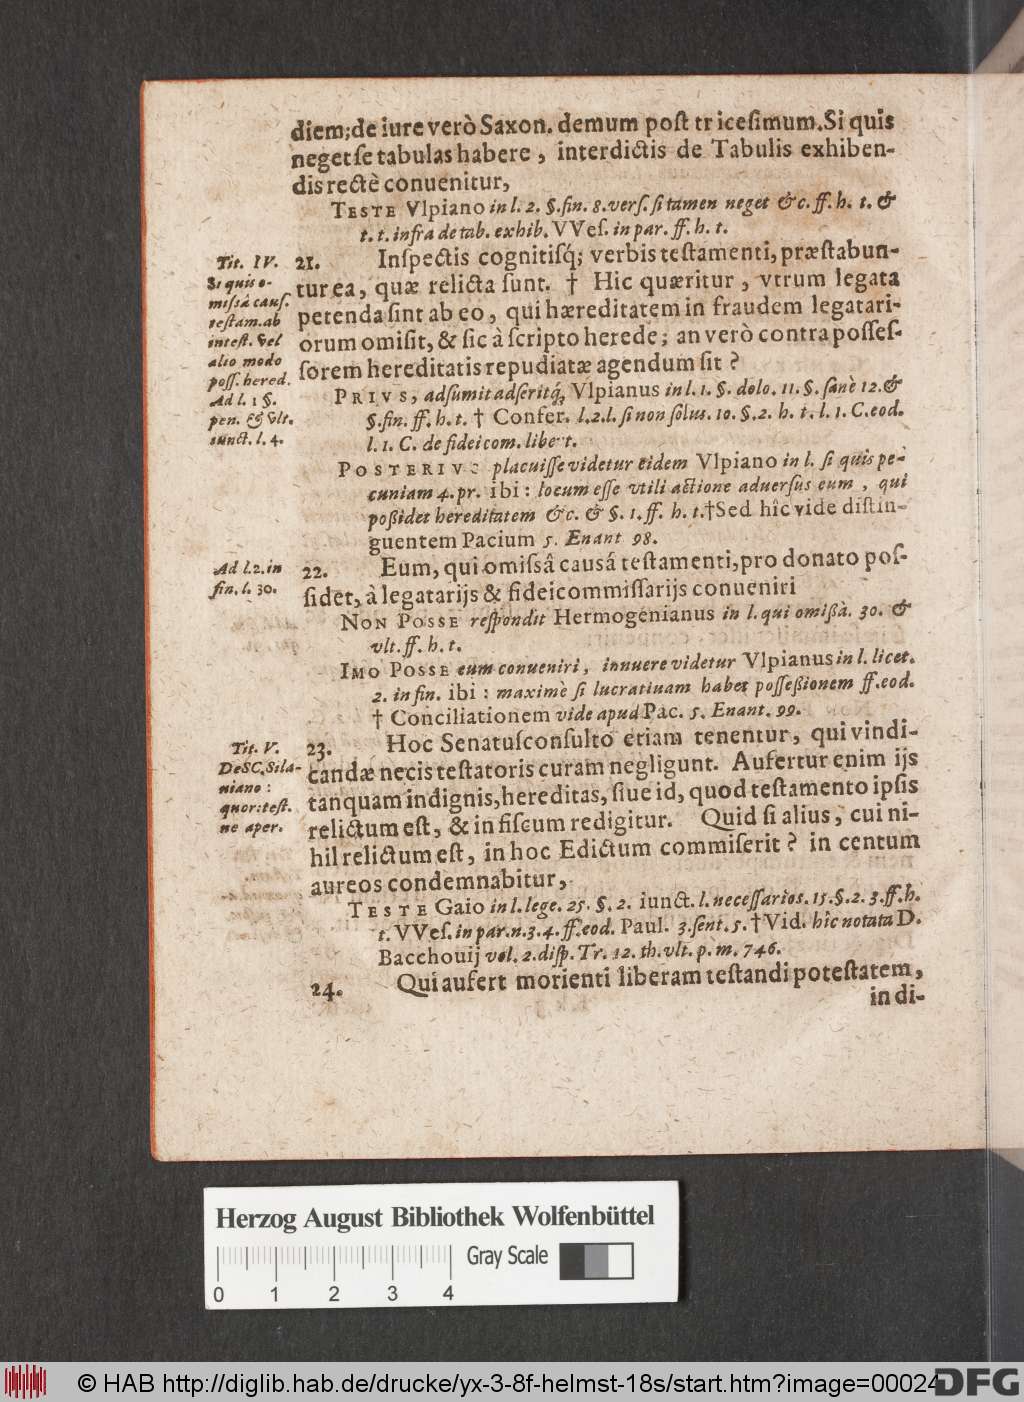 diem; de iure verò Saxon. demum post tricesimum. Si quis
neget se tabulas habere, interdictis de Tabulis exhiben-
dis rectè conuenitur,
TESTE Vlpiano in l. 2. §. fin. 8. vers. si tamen neget &c. ff. h. t. &
t. t. infra de tab. exhib. VVes. in par. ff. h. t.
Tit. IV.
Si quis o-
missâ caus.
testam. ab
intest. vel
alio modo
poss. hered.
Ad l. 1 §.
pen. & vlt.
iunct. l. 4.
21. Inspectis cognitisq́; verbis testamenti, præstabun-
tur ea, quæ relicta sunt. † Hic quæritur, vtrum legata
petenda sint ab eo, qui hæreditatem in fraudem legatari-
orum omisit, & sic à scripto herede; an verò contra posses-
sorem hereditatis repudiatæ agendum sit?
PRIVS, adsumit adseritq́; Vlpianus in l. 1. §. dolo. 11. §. sanè 12. &
§. fin. ff. h. t. † Confer. l. 2. l. si non solus. 10. §. 2. h. t. l. 1. C. eod.
l. 1. C. de fideicom. libert.
POSTERIVS placuisse videtur eidem Vlpiano in l. si quis pe-
cuniam 4. pr. ibi: locum esse vtili actione aduersus eum, qui
poßidet hereditatem &c. & §. 1. ff. h. t. † Sed hîc vide distin-
guentem Pacium 5. Enant 98.
Ad l. 2. in
fin. l. 30.
22. Eum, qui omissâ causâ testamenti, pro donato pos-
sidet, à legatarijs & fideicommissarijs conueniri
NON POSSE respondit Hermogenianus in l. qui omißâ. 30. &
vlt. ff. h. t.
IMO POSSE eum conueniri, innuere videtur Vlpianus in l. licet.
2. in fin. ibi: maximè si lucratiuam habet posseßionem ff. eod.
† Conciliationem vide apud Pac. 5. Enant. 99.
Tit. V.
De SC. Sila-
niano:
quor: test.
ne aper.
23. Hoc Senatusconsulto etiam tenentur, qui vindi-
candæ necis testatoris curam negligunt. Aufertur enim ijs
tanquam indignis, hereditas, siue id, quod testamento ipsis
relictum est, & in fiscum redigitur. Quid si alius, cui ni-
hil relictum est, in hoc Edictum commiserit? in centum
aureos condemnabitur,
TESTE Gaio in l. lege. 25. §. 2. iunct. l. necessarios. 15. §. 2. 3. ff. h.
t. VVes. in par. n. 3. 4. ff. eod. Paul. 3. sent. 5. † Vid. hîc notata D.
Bacchouij vol. 2. disp. Tr. 12. th. vlt. p. m. 746.
24. Qui aufert morienti liberam testandi potestatem,
in di-
Herzog August Bibliothek Wolfenbüttel
Gray Scale
0 1 2 3 4
© HAB http://diglib.hab.de/drucke/yx-3-8f-helmst-18s/start.htm?image=00024
DFG